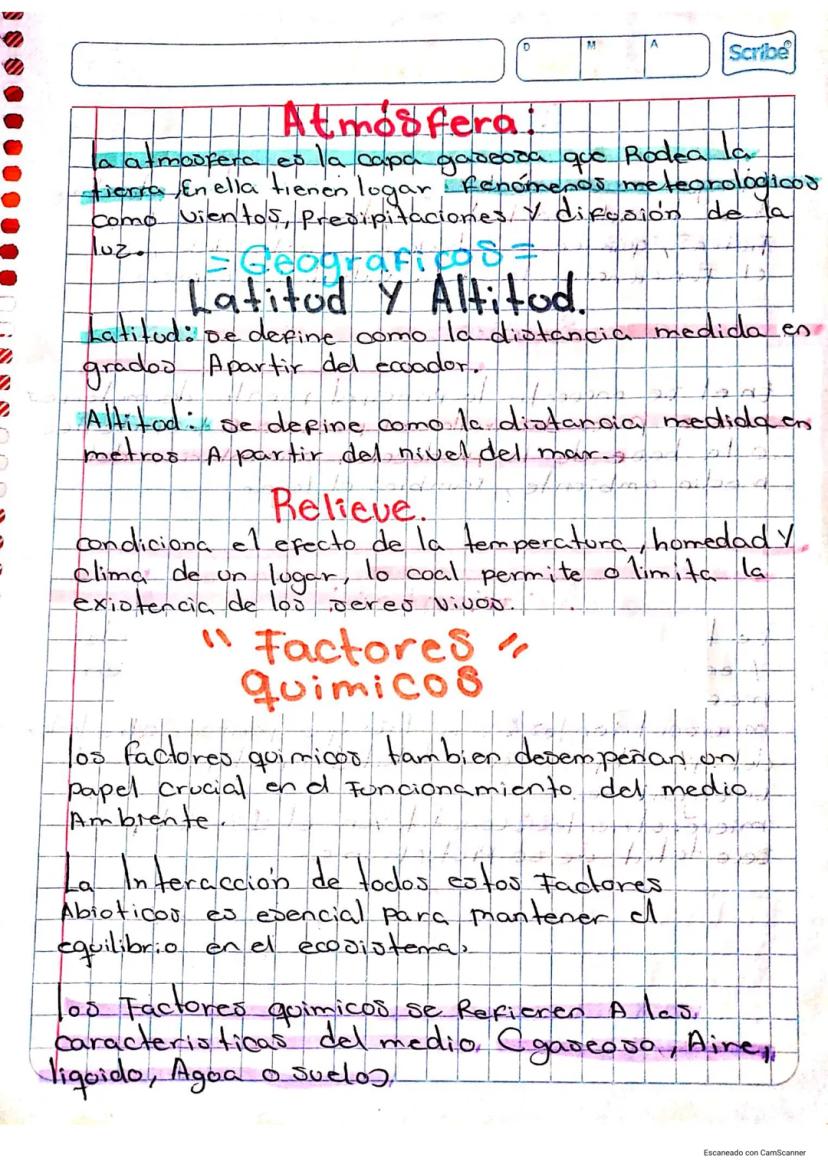 D M A Scribe
Atmósfera:
la atmosfera es la capa gaseosa que Rodea la
tierra, En ella tienen lugar fenómenos meteorológicos
como vientos, Presipitaciones Y difusión de la
luz.
= Geograficos =
Latitud Y Altitud.
Latitud: se define como la distancia medida en
grados Apartir del ecuador.
Altitud: se define como la distancia medida en
metros A partir del nivel del mar.
Relieve.
condiciona el efecto de la temperatura, homedad Y
clima de un lugar, lo cual permite o limita la
existencia de los seres vivos.
" Factores "
químicos
los factores químicos tambien desempeñan un
papel crucial en el Funcionamiento del medio
Ambiente.
La Interacción de todos estos Factores
Abioticos es esencial para mantener el
equilibrio en el ecosistema,
los Factores químicos se Refieren A las
caracteristicas del medio Cgaseoso, Aire,
líquido, Agua o suelo),
Escaneado con CamScanner